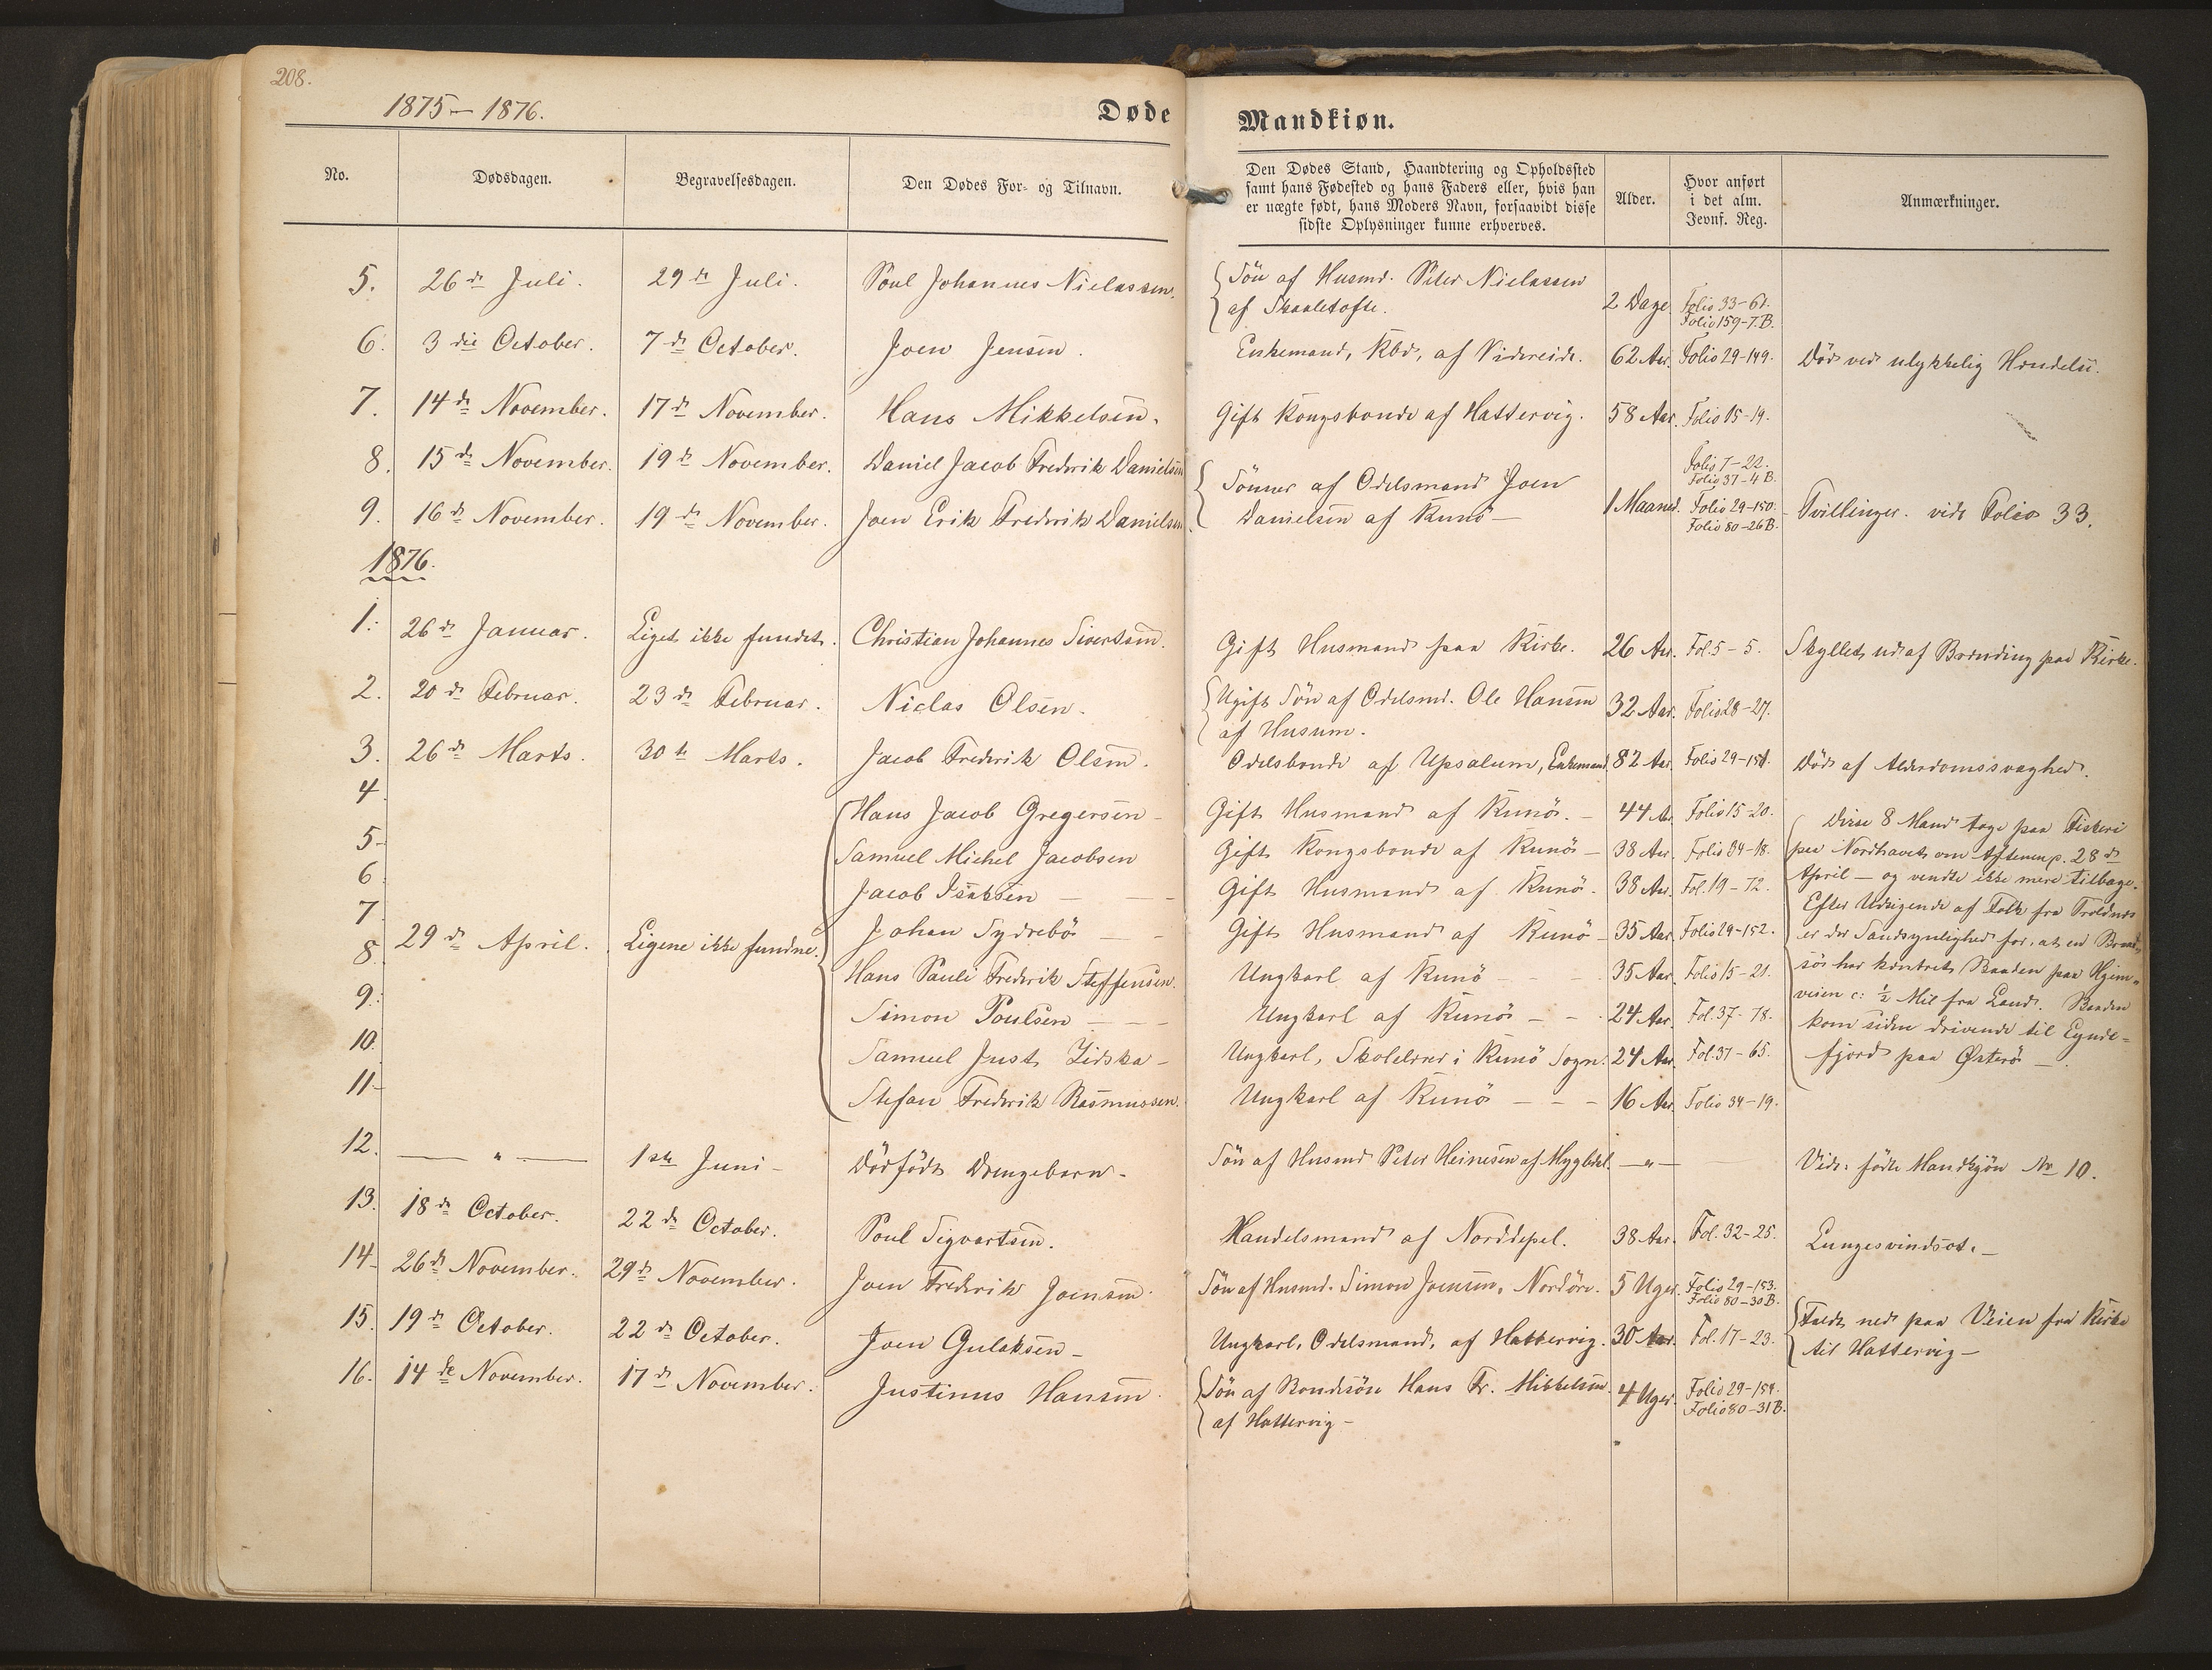 208.
1875 – 1876.
Døde
Mandkiøn.
No.
Dødsdagen.
Begravelsesdagen.
Den Dødes For- og Tilnavn.
Den Dødes Stand, Haandtering og Opholdssted
samt hans Fødested og hans Faders eller, hvis han
er uægte født, hans Moders Navn, forsaavidt disse
sidste Oplysninger kunne erhverves.
Alder.
Hvor anført
i det alm.
Jevnf. Reg.
Anmærkninger.
5. 26de Juli. 29de Juli. Poul Johannes Nielassen. Søn af Husmd. Peter Nielassen
af Skaaletofte. 2 Dage Folio 33-61.
Folio 159-7.B.
6. 3die October. 7de October. Joen Jensen. Enkemand, Kbd, af Videreide. 62 Aar. Folio 29-149. Død ved ulykkelig Hændelse.
7. 14de November. 17de November. Hans Mikkelsen. Gift Kongsbonde af Hattervig. 58 Aar. Folio 15-19.
8. 15de November. 19de November. Daniel Jacob Frederik Danielsen Sønner af Odelsmand Joen Folio 7-22.
Folio 37-4B.
9. 16de November. 19de November. Joen Erik Frederik Danielsen Danielsen af Kunö – 1 Maaned. Folio 29-150.
Folio 80-26B. Tvillinger. vide Folio 33.
1876.
1. 26de Januar. Liget ikke fundet. Christian Johannes Sivertsen. Gift Husmand paa Kirke. 26 Aar. Fol. 5-5. Skyllet ud af Brænding paa Kirke.
2. 20de Februar. 23de Februar. Niclas Olsen. Ugift Søn af Odelsmd. Ole Hansen
af Husum. 32 Aar. Folio 28-27.
3. 26de Marts. 30te Marts. Jacob Frederik Olsen. Odelsbonde af Upsalum, Enkemand. 82 Aar. Folio 29-151. Død af Alderdomssvaghed.
4 Hans Jacob Gregersen – Gift Husmand af Kunö. – 44 Aar Folio 15-20. Disse 8 Mand toge paa Fiskeri
5 Samuel Michel Jacobsen Gift Kongsbonde af Kunö – 38 Aar. Folio 34-18. paa Nordhavet om Aftenen p. 28de
6 Jacob Isaksen – – Gift Husmand af Kunö. 38 Aar. Fol. 19-72. April – og vendte ikke mere tilbage.
7 Johan Sydrebö – – Gift Husmand af Kunö – 35 Aar. Folio 29-152. Efter Udsigende af Folk fra Troldnæs
8 29de April. Ligene ikke fundne. Hans Pauli Frederik Steffensen. Ungkarl af Kunö – 35 Aar. Folio 15-21. er der Sandsynlighed for, at en Braad-
9. Simon Poulsen – – – Ungkarl af Kunö – – 24 Aar. Fol. 37-78. sø har kæntret Baaden paa Hjem-
10. Samuel Just Zidska – Ungkarl, Skolelærer i Kunö Sogn. 24 Aar. Fol. 37-65. veien c: ½ Mil fra Land. Baaden
11 Stefan Frederik Rasmussen. Ungkarl af Kunö – – – 16 Aar. Folio 34-19. kom siden drivende til Eynde-
fjord paa Østerö –
12. – " – 1ste Juni – Dødfødt Drengebarn. Søn af Husmd Peter Heinesen af Mygledal. – " – Vide: fødte Mandkjøn No 10.
13. 18de October. 22de October. Poul Sigvartsen. Handelsmand af Norddepel. 38 Aar. Fol. 32-25. Lungesvindsot. –
14 26de November. 29de November. Joen Frederik Joensen. Søn af Husmd. Simon Joensen, Nordöre. 5 Uger. Folio 29-153.
Folio 80-30B.
15. 19de October. 22de October. Joen Gulaksen – Ungkarl, Odelsmand, af Hattervig. 30 Aar. Fol. 17-23. Faldt ned paa Veien fra Kirke
til Hattervig –
16. 14de November. 17de November. Justinus Hansen. Søn af Bondesön Hans Fr. Mikkelsen
af Hattervig – 4 Uger. Folio 29-154.
Folio 80-31B.